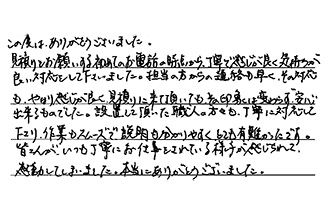 この度は、ありがとうございました。
見積りをお願いする初めてのお電話の時点から、丁寧で感じが良く気持ちが
良い対応をして下さいました。担当の方からの連絡も早く、その対応
も、やはり感じが良く、見積りに来て頂いても、印象は変わらず安心
出来るものでした。設置して頂いた職人の方々も、丁寧に対応して
下さり、作業もスムーズで説明も分かりやすくとても有難かったです。
皆さんが、いつも丁寧にお仕事をされている様子が感じられて、
感動してしまいました。本当にありがとうございました。